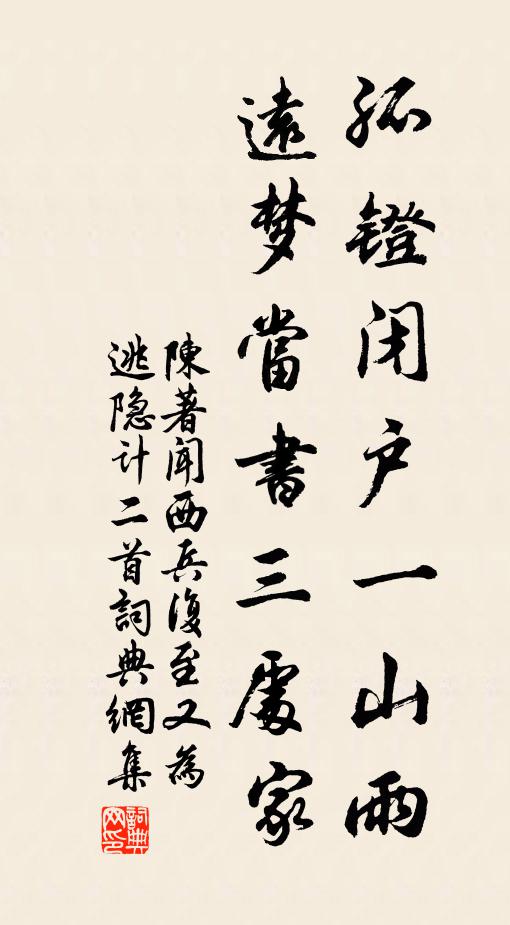 孤镫闭户一山雨
遠梦當書三處家
陳著闻西兵復至又為
逃隐计二首詞典網集
詞典网印